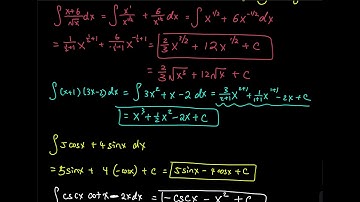 ∫ x+6/√x dx = ∫ x¹/x^½ + 6/x^½ dx = ∫ x^1/2 + 6x^-1/2 dx
= 1/(½+1) x^(½+1) + 6/(-½+1) x^(-½+1) = 2/3 x^3/2 + 12x^1/2 + C
= 2/3 √x³ + 12√x + C
∫(x+1)(3x-2)dx = ∫ 3x² + x - 2 dx = 3/(2+1) x^(2+1) + 1/(1+1) x^(1+1) - 2x + C
= x³ + ½x² - 2x + C
∫ 5cosx + 4sinx dx
= 5sinx + 4 (-cosx) + C = 5sinx - 4cosx + C
∫ cscx cotx - 2x dx = -cscx - x² + C